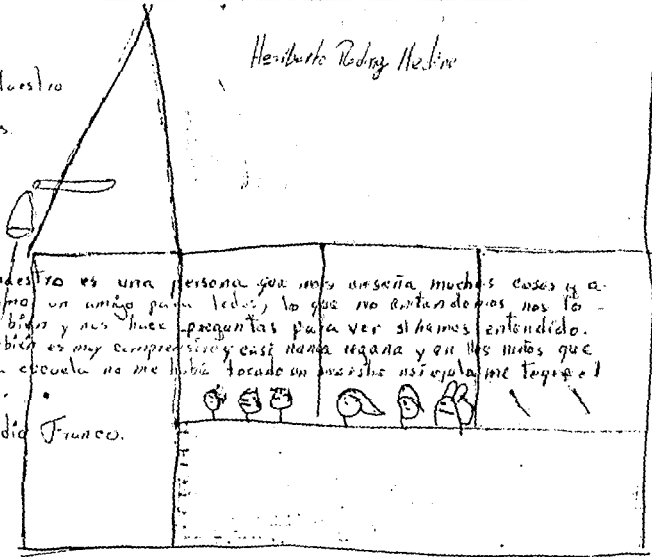 Heriberto Rodríg Medina
aestro
s.
aestro es una persona que nos enseña muchas cosas y a-
omo un amigo para todos, lo que no entendemos nos lo
bién y nos hace preguntas para ver si hemos entendido.
bién es muy comprensivo y casi nunca regaña y en los años que
a escuela no me había tocado un maestro así ojala me toque el
dio Franco.